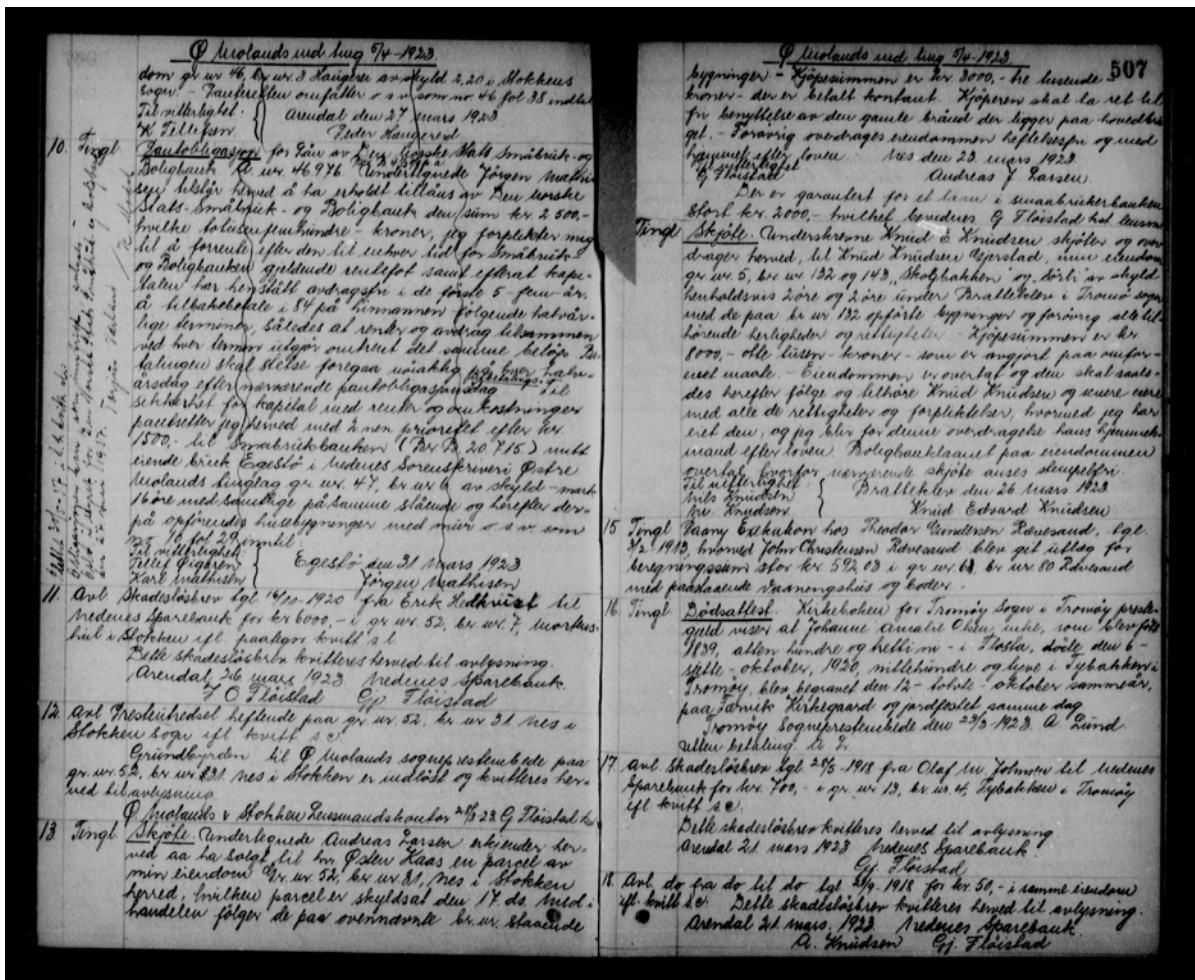 Ø Molands md ting 5/4-1923.
dom gr. nr 46, br nr. 3 Haugerei av skyld 2,20 i Stokkens
sogn. - Panteretten omfatter o s v som no 46 fol 38 indtil
Til vitterlighet:
K Tellefsen.
Arendal den 27 mars 1923
Peder Haugereid
10. Tingl Pantobligasjon for Lån av Den Norske Stats Småbruk- og
Boligbank A nr. 46976. Undertegnede Jørgen Mathi-
sen tilstår herved å ha erholdt tillåns av Den norske
Stats-Småbruk- og Boligbank den sum kr 2 500,-
hvilke totusenfemhundre - kroner, jeg forplikter mig
til å forrente efter den til enhver tid for Småbruk-
og Boligbanken gjeldende rentefot samt efterat kapi-
talen har henstått avdragsfri i de første 5 - fem - år,
å tilbakebetale i 84 på hinnannen følgende halvår-
lige terminer, således at renter og avdrag tilsammen
ved hver termin utgjør omtrent det samme beløp. Be-
talingen skal stetse foregaa nøiaktig på hver halv-
årsdag efter nærværende pantobligasjons dag Til
utbetalings
sikkerhet for kapital med renter og omkostninger
pantsetter jeg herved med 2 nen prioritet efter kr
1500,- til Småbrukbanken (Br. B. 20.715) mitt
eiende bruk Egestø i Nedenes Sorenskriveri Østre
Molands tinglag gr. nr. 47, br nr 6 av skyld - mark
16 øre med samtlige på samme stående og herefter der-
på opførendes husebygninger med mier o s. v. som
no 10 fol 29 inntil:
Til vitterlighet:
Tellef Øigaren
Karl Mathisen
Egestø den 31 mars 1923
Jørgen Mathisen
11. Avl Skadesløsbrev tgl 16/10-1920 fra Erik Hedkvist til
Nedenes Sparebank for kr 6000,- i gr. nr. 52, br. nr. 7,
i Stokken ifl. paategn kvitt s. l
Dette skadesløsbrev kvitteres herved til avlysning.
Arendal, 26 mars 1923 Nedenes Sparebank.
J O Fløistad Gj Fløistad
12. Avl Presteutredsel heftende paa gr. nr. 52, br nr 31 Nes i
Stokken sogn ifl kvitt s. c
Grundbyrden til Ø Molands sogneprestembede paa
gr. nr. 52, br nr 31 Nes i Stokken er indløst og kvitteres her-
ved til avlysning
Ø Molands & Stokken Lensmandskontor 28/3 23 G Fløistad
13 Tingl Skjøte. Undertegnede Andreas Larsen erkjender her-
ved aa ha solgt til hr. Østen Kaas en parcel av
min eiendom Gr. nr. 52, br. nr. 31, Nes i Stokken
herred, hvilken parcel er skyldsat den 17. ds. Med i
handelen følger de paa ovennævnte br. nr. staaende
Ø Molands md ting 5/4-1923
507
bygninger - Kjøpesummen er kr 3000,- tre tusende
kroner - der er betalt kontant. Kjøperen skal ha ret til
fri benyttelse av den gamle brønd der ligger paa hovedbrü-
get. - Forøvrig overdrages eiendommen heftelsesfri og med
hjemmel efter loven. Nes den 23. mars 1923
Til vitterlighet
G Fløistad
Andreas J Larsen
Der er garantert for et laan i smaabrukerbanken
stort kr. 2000,- hvilket bevidnes G Fløistad
Tingl Skjøte. Underskrevne Knud E Knudsen skjøter og over-
drager herved, til Knud Knudsen Gjerstad, min eiendom
gr. nr 5, br nr 132 og 143, "Skolbakken" og "Sørli" av skyld
henholdsvis 2 øre og 2 øre under Bratteklev i Tromø sogn
med de paa br nr 132 opførte bygninger og forøvrig alle til-
hørende herligheder og rettigheter - Kjøpesummen er kr
8000,- otte tusen - kroner - som er avgjort paa omfor-
enet maate. - Eiendommen er overtat og den skal saale-
des herefter følge og tilhøre Knud Knudsen og senere eiere
med alle de rettigheter og forpliktelser, hvormed jeg har
eiet den, og jeg blir for denne overdragelse hans hjemmels-
mand efter loven. Boligbanklaanet paa eiendommen
overtat, hvorfor nærværende skjøte anses stempelfri.
Til vitterlighet:
Nils Knudsen
M. Knudsen
Bratteklev den 26 mars 1923
Knud Edvard Knudsen
15 Tingl Paany Exekution hos Theodor Gundersen Rævesand, tgl.
3/2 1913, hvorved John Christensen Rævesand blev git utlæg for
beregningssum stor kr 592 03 i gr. nr. 61, br nr. 80 Rævesand
med paastaaende vaaningshus og boder.
16. Tingl Dødsattest. Kirkeboken for Tromøy Sogn i Tromøy preste-
gjeld viser at Johanne Amalie Olsen, enke, som blev født
1839, atten hundre og tretti ni - i Flosta, døde den 6 -
sjette - oktober, 1920, nittehundre og tyve i Tybakken i
Tromøy, blev begravet den 12 - tolvte - oktober samme år,
paa Færvik Kirkegaard og jordfestet samme dag
Tromøy Sogneprestembede den 23/3-1923. A Lund
Uten betaling. A L
17. Avl. Skadesløsbrev tgl 28/5-1918 fra Olaf M. Johnsen til Nedenes
Sparebank for kr. 700,- i gr. nr 13, br. nr. 4, Tybakken i Tromøy
ifl kvitt s. c.
Dette skadesløsbrev kvitteres herved til avlysning
Arendal 21. mars 1923 Nedenes Sparebank.
Gj Fløistad
18. Avl. do fra do til do tgl 21/9. 1918 for kr. 50,- i samme eiendom
ifl. kvitt s. c. Dette skadesløsbrev kvitteres herved til avlysning.
Arendal 21. mars. 1923. Nedenes Sparebank.
A. Knudsen Gj. Fløistad